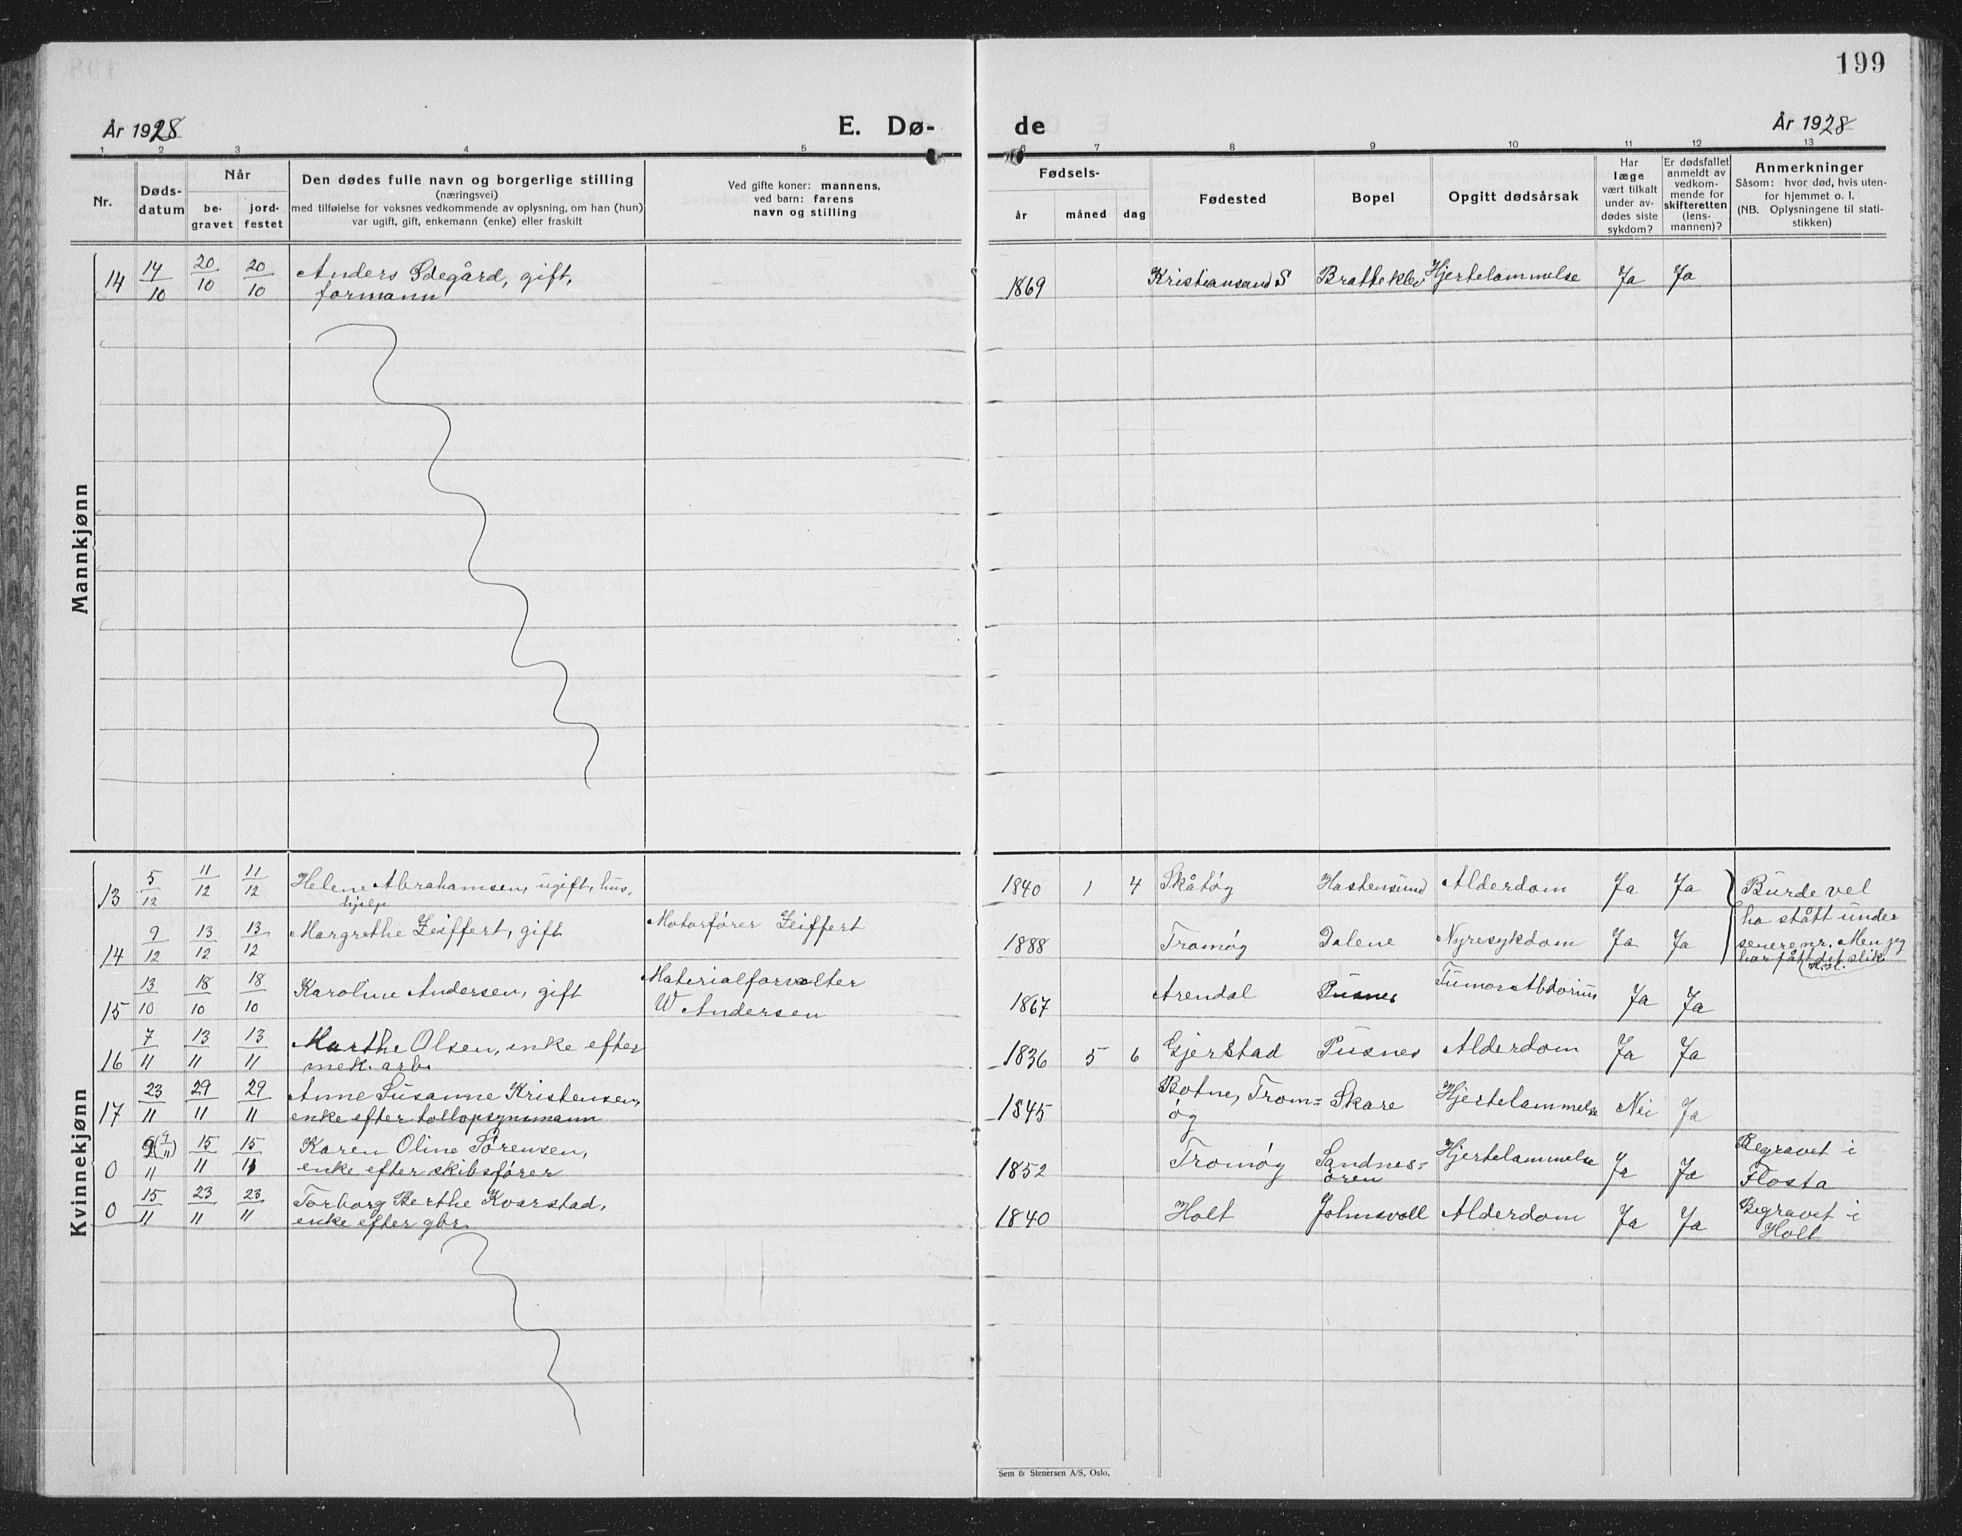 199
År 1928
E. Dø-
de
År 1928
1 2 3 4 5 6 7 8 9 10 11 12 13
Nr.
Døds-
datum
Når
be-
gravet
jord-
festet
Den dødes fulle navn og borgerlige stilling
(næringsvei)
med tilføielse for voksnes vedkommende av oplysning, om han (hun)
var ugift, gift, enkemann (enke) eller fraskilt
Ved gifte koner: mannens,
ved barn: farens
navn og stilling
Fødsels-
år
måned
dag
Fødested
Bopel
Opgitt dødsårsak
Har
læge
vært tilkalt
under av-
dødes siste
sykdom?
Er dødsfallet
anmeldt av
vedkom-
mende for
skifteretten
(lens-
mannen)?
Anmerkninger
Såsom: hvor død, hvis uten-
for hjemmet o. l.
(NB. Oplysningene til stati-
stikken)
Mannkjønn
14 14/10 20/10 20/10 Anders Ødegård, gift, 1869 Kristiansand S Bratteklev Hjertelammelse Ja Ja
formann
Kvinnekjønn
13 5/12 11/12 11/12 Helene Abrahamsen, ugift, hus- 1840 1 4 Skåtøy Hastensund Alderdom Ja Ja Burde vel
hjelp
ha stått under
14 9/12 13/12 13/12 Margrethe Zeiffert, gift Motorfører Zeiffert 1888 Tromøy Dalene Nyresykdom Ja Ja senere nr. Men jeg
har fått det slik
15 13/10 18/10 18/10 Karoline Andersen, gift Materialforvalter 1867 Arendal Pusnes Tumor Abdorium Ja Ja
W Andersen
16 7/11 13/11 13/11 Marthe Olsen, enke efter 1836 5 6 Gjerstad Pusnes Alderdom Ja Ja
mek. arb.
17 23/11 29/11 29/11 Anne Susanne Kristensen, 1845 Botne, Trom= Skare Hjertelammelse Nei Ja
enke efter tollopsynsmann øy
0 9(9/11)/11 15/11 15/11 Karen Oline Sørensen, 1852 Tromøy Sandnes= Hjertelammelse Ja Ja Begravet i
enke efter skibsfører øren Flosta
0 15/11 23/11 23/11 Torborg Berthe Kvarstad, 1840 Holt Johnsvoll Alderdom Ja Ja Begravet i
enke efter gbr. Holt
Sem & Stenersen A/S, Oslo.